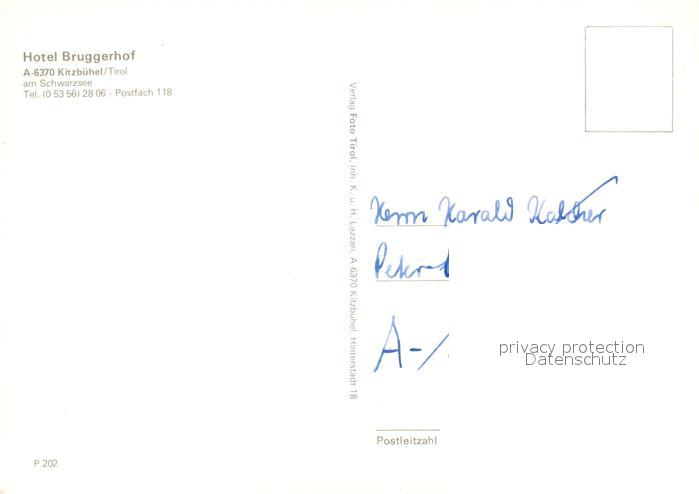 Hotel Bruggerhof
A-6370 Kitzbühel/Tirol
am Schwarzsee
Tel. (0 53 56) 28 06 - Postfach 118
Verlag Foto Tirol, Inh. K. u. H. Lazzari, A-6370 Kitzbühel, Hinterstadt 18
Herrn Harald
Peter-
A-
privacy protection
Datenschutz
Postleitzahl
P 202